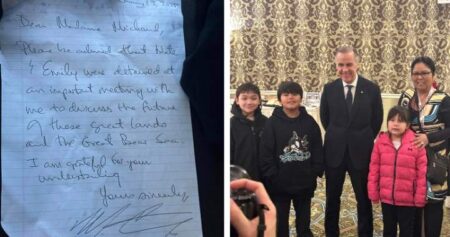 Dear Madame Michaud,
Please be advised that Nate
& Emily were detained at
an important meeting with
me to discuss the future
of these great lands
and the Great Bear Sea.
I am grateful for your
understanding
Yours sincerely